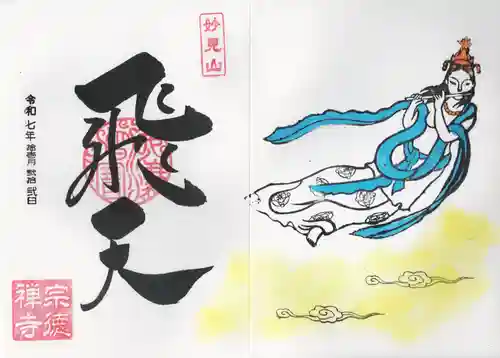 妙見山
飛天
令和七年 拾壹月 貳拾 貳日
宗徳
禅寺